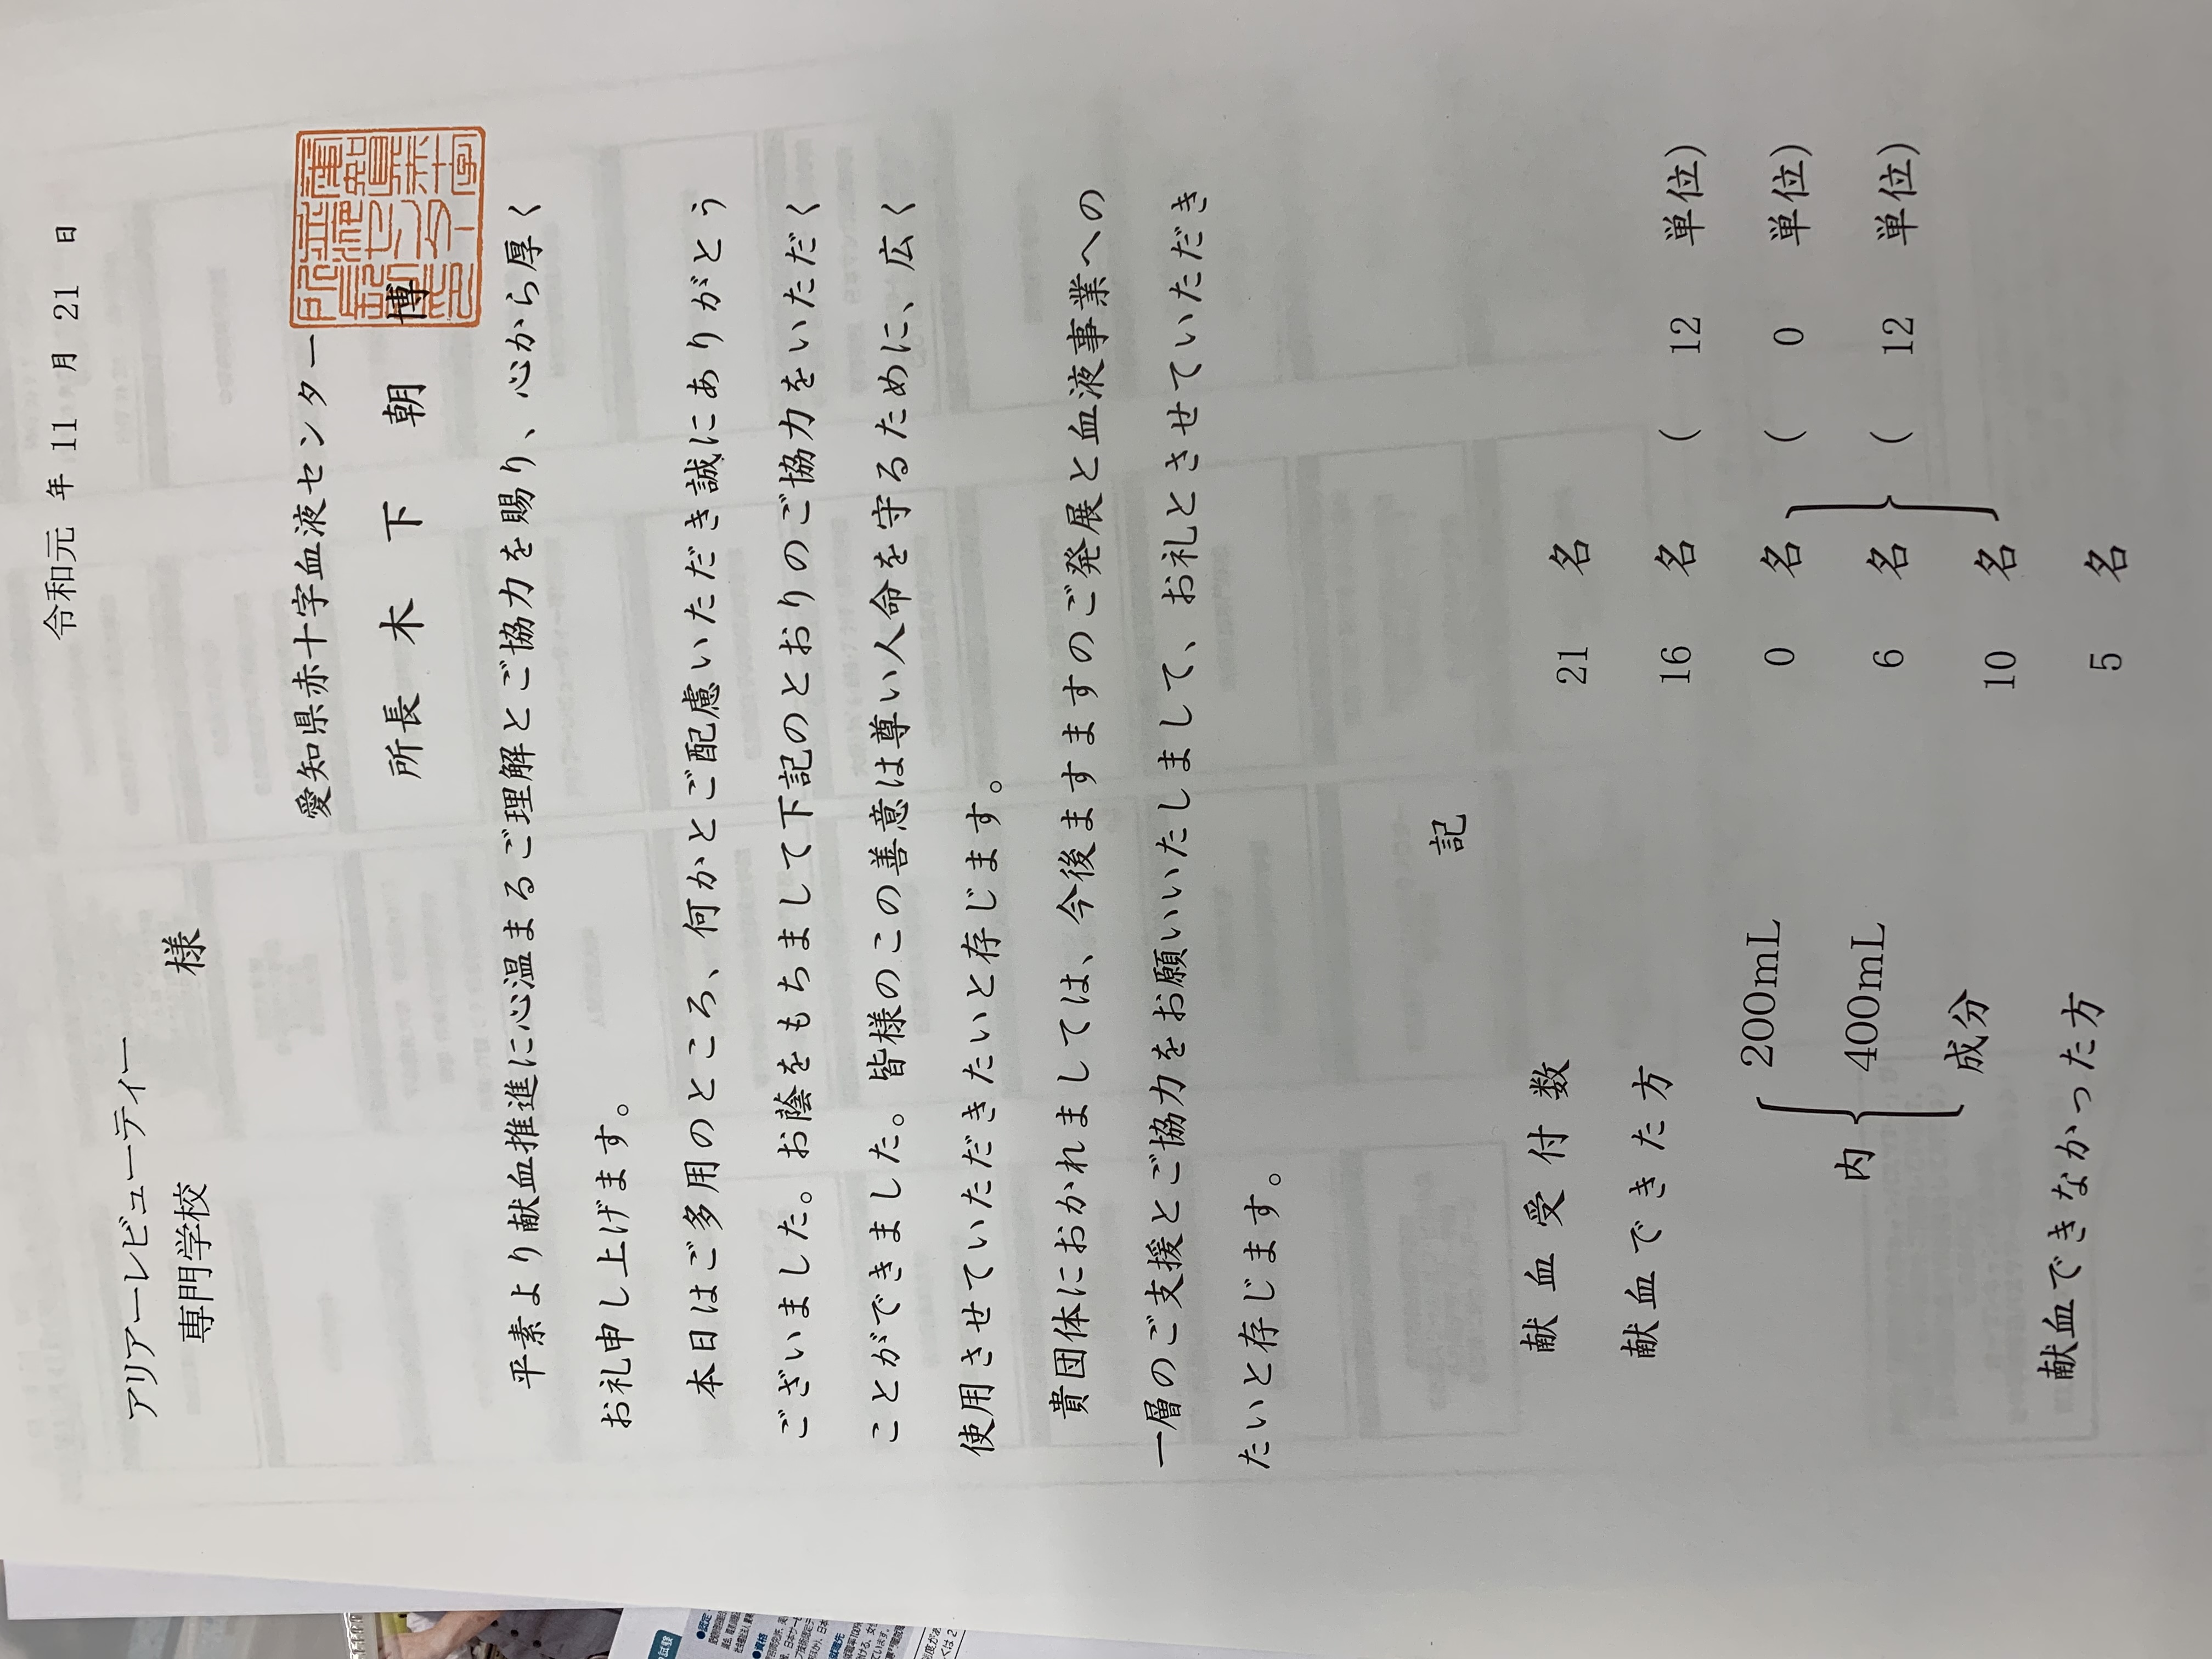 令和元 年 11 月 21 日
アリアーレビューティー
専門学校 様
愛知県赤十字血液センター
所長 木 下 朝 博
平素より献血推進に心温まるご理解とご協力を賜り、心から厚く
お礼申し上げます。
本日はご多用のところ、何かとご配慮いただき誠にありがとう
ございました。お蔭をもちまして下記のとおりのご協力をいただく
ことができました。皆様のこの善意は尊い人命を守るために、広く
使用させていただきたいと存じます。
貴団体におかれましては、今後ますますのご発展と血液事業への
一層のご支援とご協力をお願いいたしまして、お礼とさせていただき
たいと存じます。
記
献 血 受 付 数 21 名
献血できた方 16 名 ( 12 単位)
200mL 0 名 ( 0 単位)
内 400mL 6 名 ( 12 単位)
成分 10 名
献血できなかった方 5 名